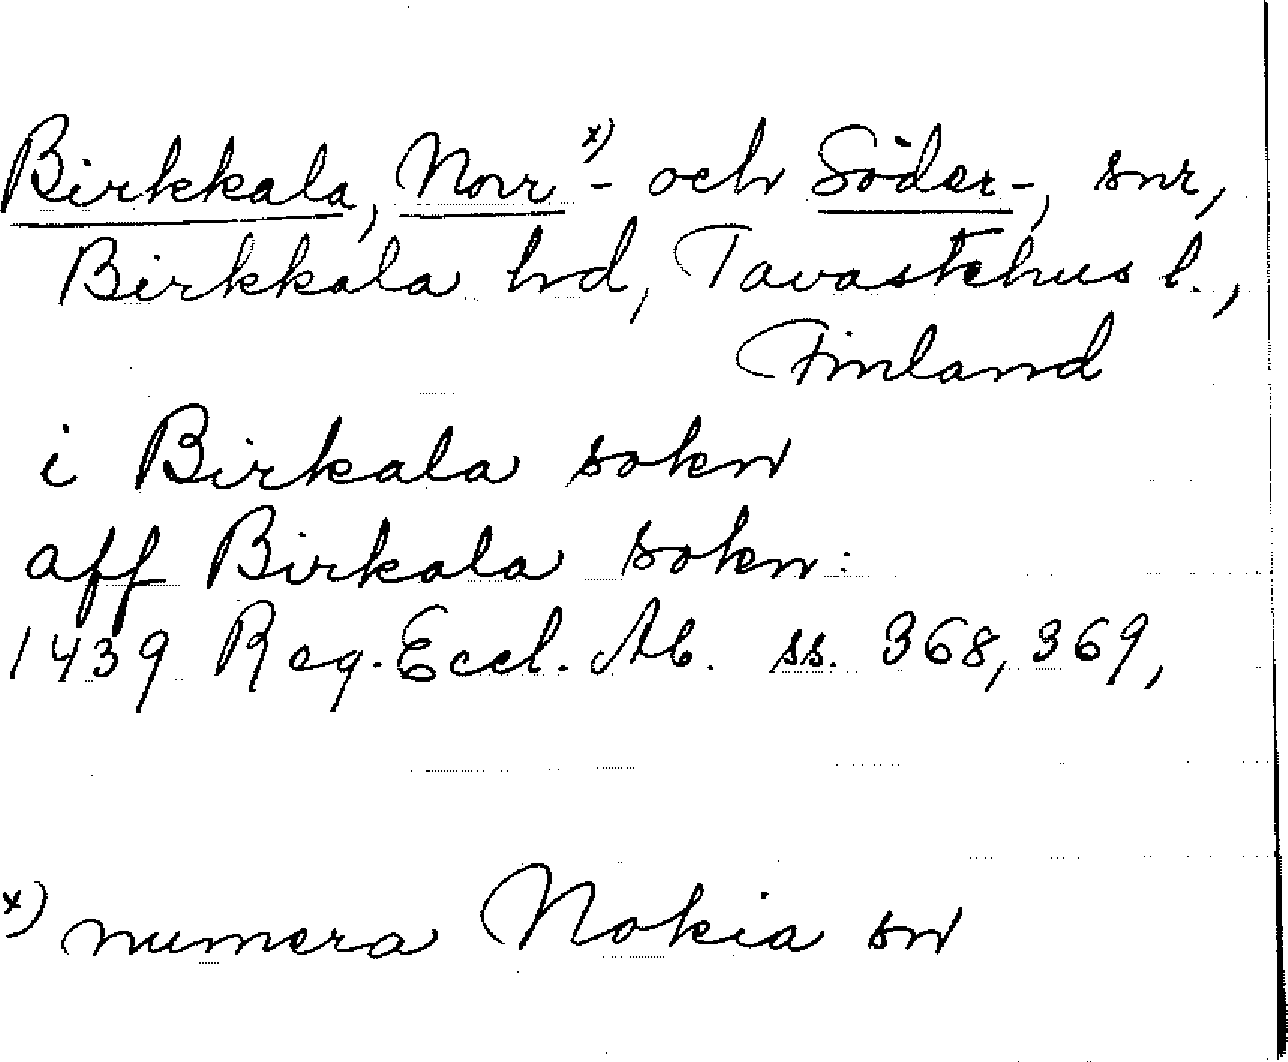 Birkkala, Norr x)- och Söder-, snr,
Birkkala hd, Tavastehus l.,
Finland
i Birkala sokn
aff Birkala sokn:
1439 Reg. Eccl. Ab. ss. 368, 369,
x) numera Nokia sn